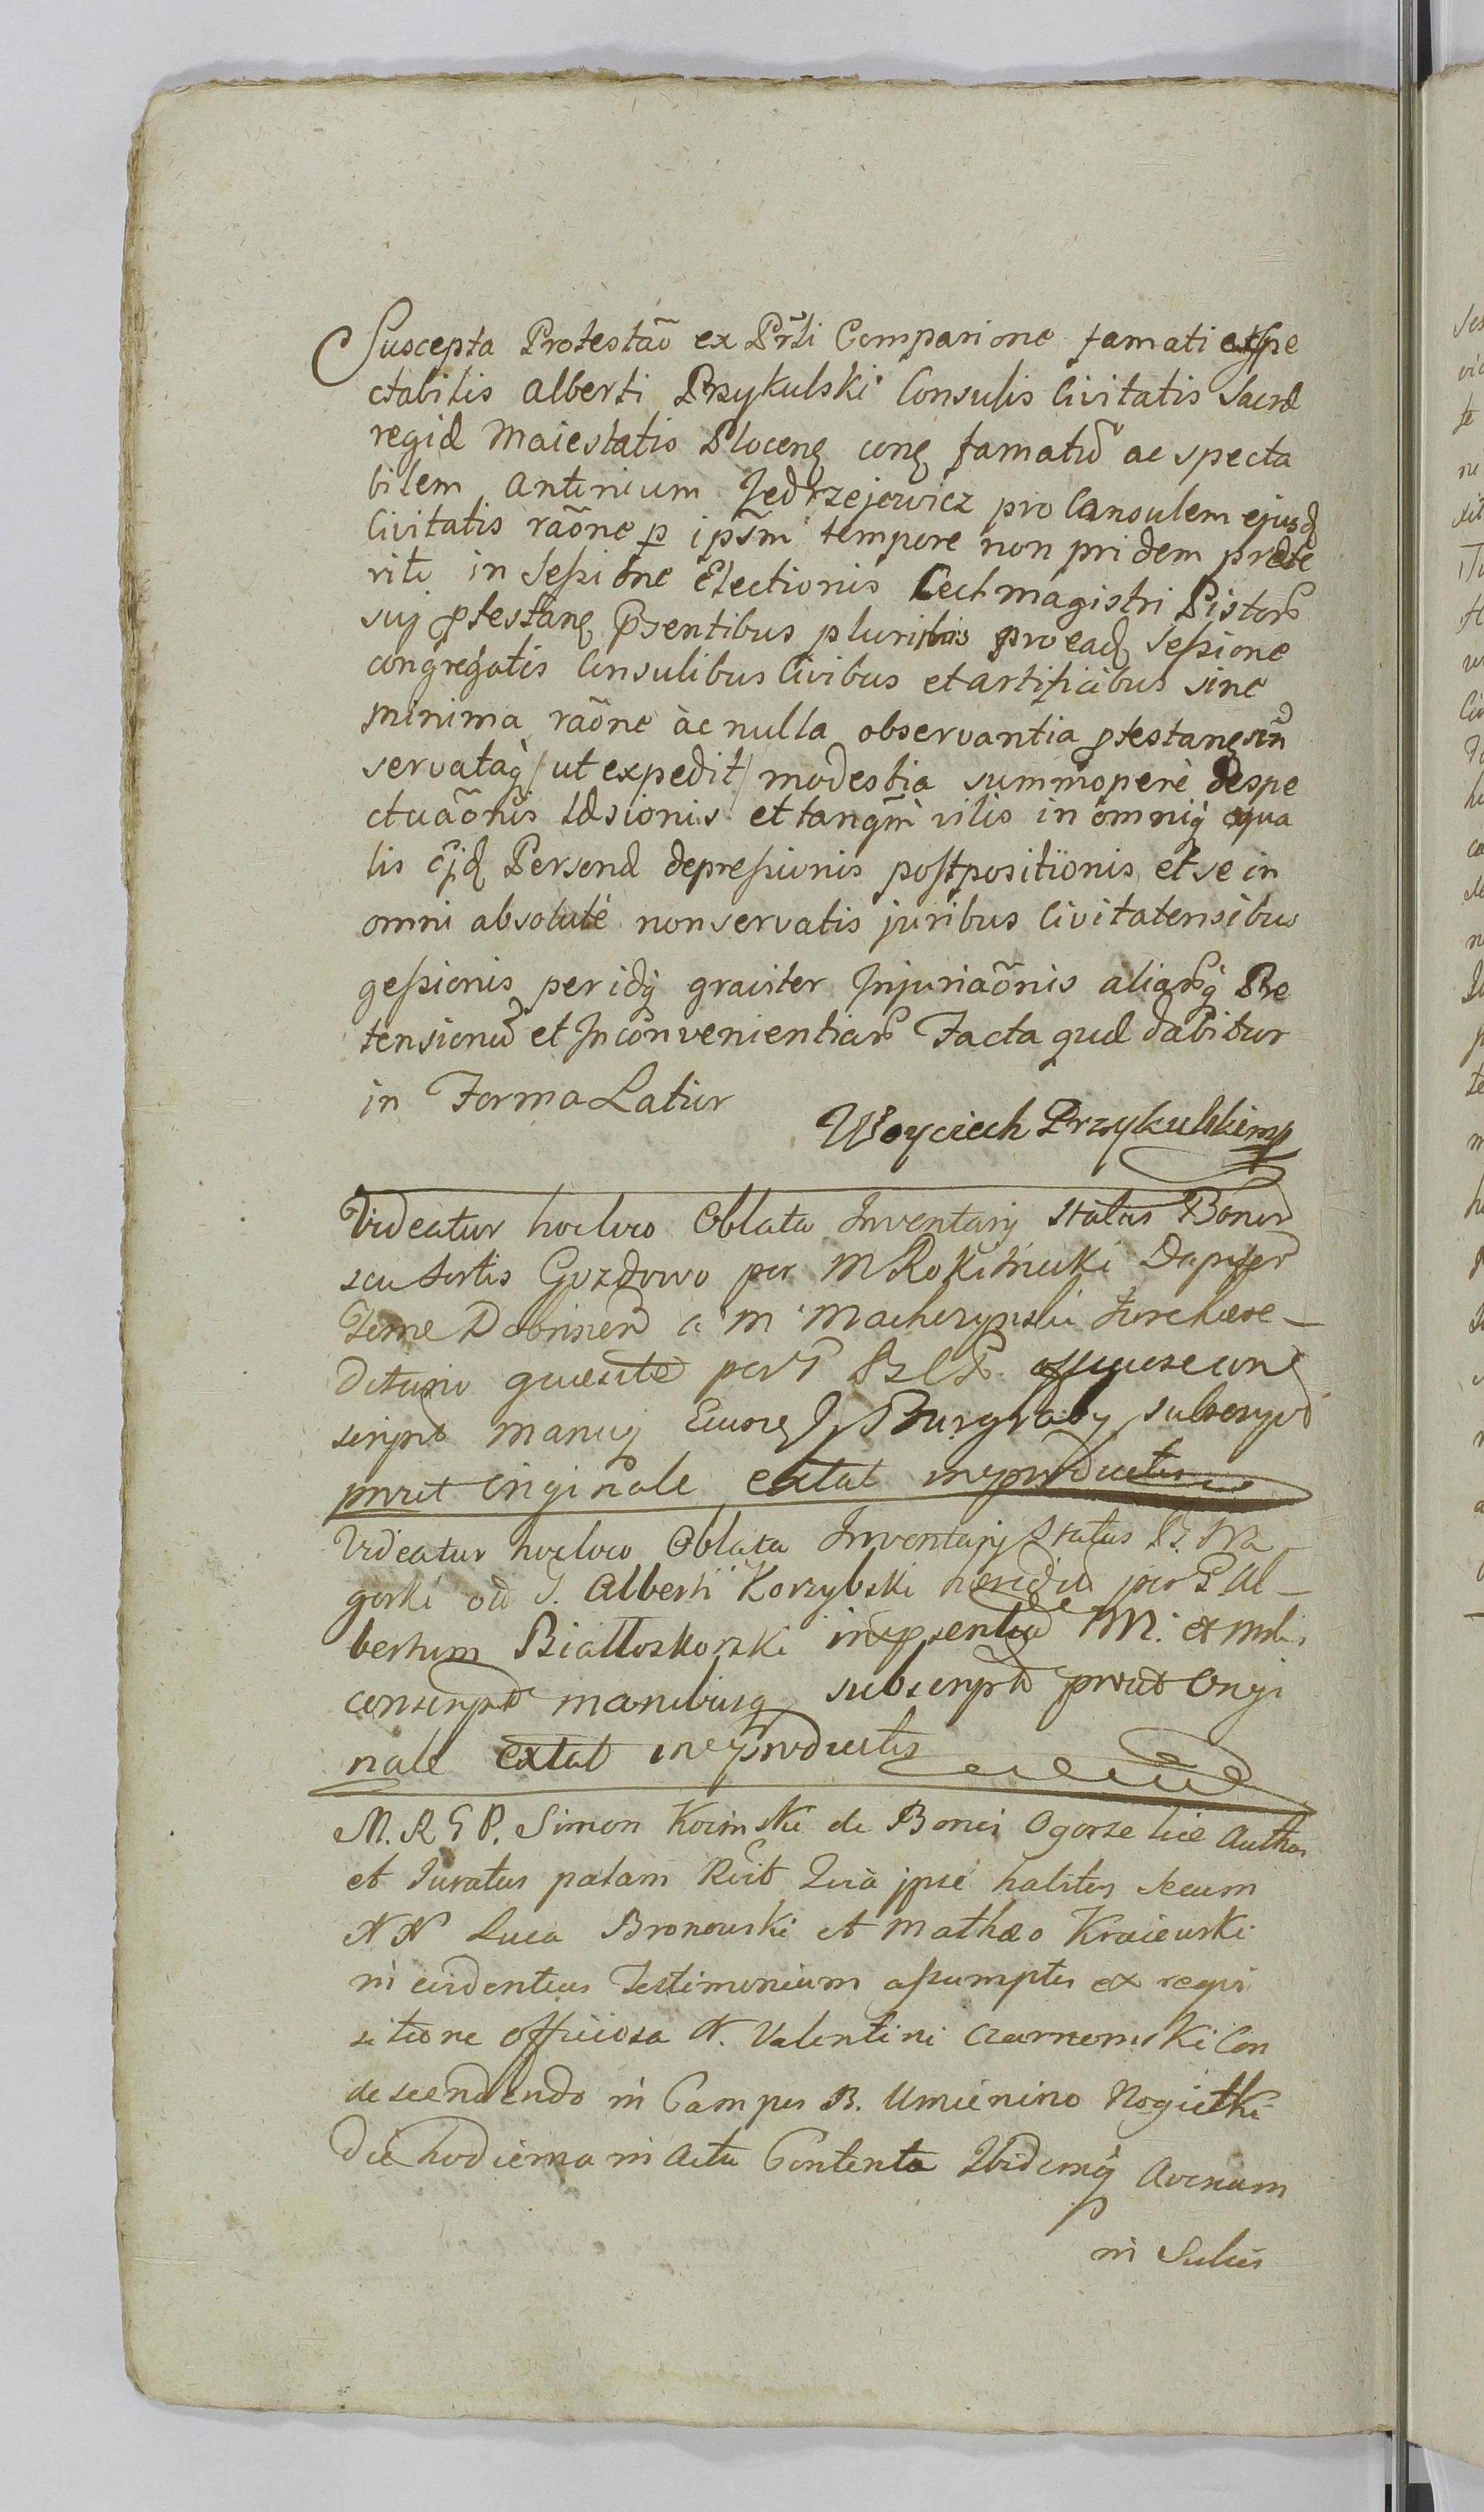 Suscepta Protestaõ ex Prti Comparione famati ac spe
ctabilis Alberti Przykulski Consulis Civitatis Sacræ
regiæ Maiestatis Plocenę conę famatũ ac specta
bilem Antonium Jędrzejewicz pro Consulem ejusd
Civitatis raõne p ipsm tempore non pridem præte
rito in Sessione Electionis Cechmagistri Pistor
suj ptestanę psentibus pluribus pro eadę Sessione
congregatis Consulibus Civibus et artificibus sine
minima raõne ac nulla observantia ptestanę
servataq / ut expedit / modestia summopere despe
ctuaõnis læsionis et tanqm vilis in omniq qua
lis cjd Personæ depressionis postpositionis et se in
omni absolute non servatis juribus Civitatensibus
gessionis per idq graviter Injuriaõnis aliarq Præ
tensionũ et Inconvenientiar Facta quæ dabitur
in Forma Latior
Woyciech Przykulski mp
Videatur hocloco Oblata Inventarij status Bonor
seu sortis Gozdowo per M Rokitnicki Dapifer
Terræ Dobrinen a M
ditario
script manuq Burgraby subscript
prout Originale extat in
Videatur hocloco Oblata Inventarij Status B. Na
gorki od G. Alberti Korzybski hered per G Al
bertum Bialloskorski in psentia M. et
conscript manibusq subscript prout Origi
nale extat in
M. R G P. Simon de Bonis Ogorzelice Author
et Juratus palam Rcit Quia ipse habitis secum
N N Luca Bronowski et Mathæo Kraiewski
in evidentius Testimonium assumptis ex requi
sitione officiosa N. Valentini Czarnomski Con
descendendo in Campos B. Umienino Nogietki
Die hodierna in Actu Contenta Ibidemq Avenam
in Sulcis